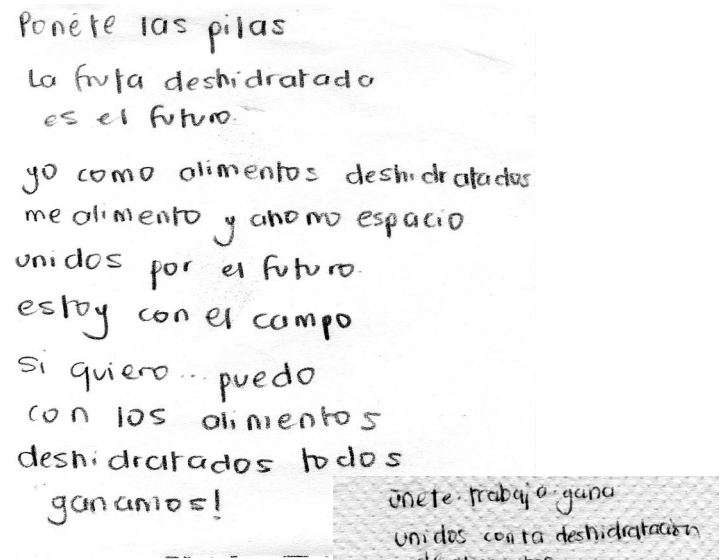 Ponete las pilas
La fruta deshidratada
es el futuro.
yo como alimentos deshidratados
me alimento y ahorro espacio
unidos por el futuro.
estoy con el campo
si quiero... puedo
con los alimentos
deshidratados todos
ganamos!
únete. trabaja. gana
unidos con la deshidratacion